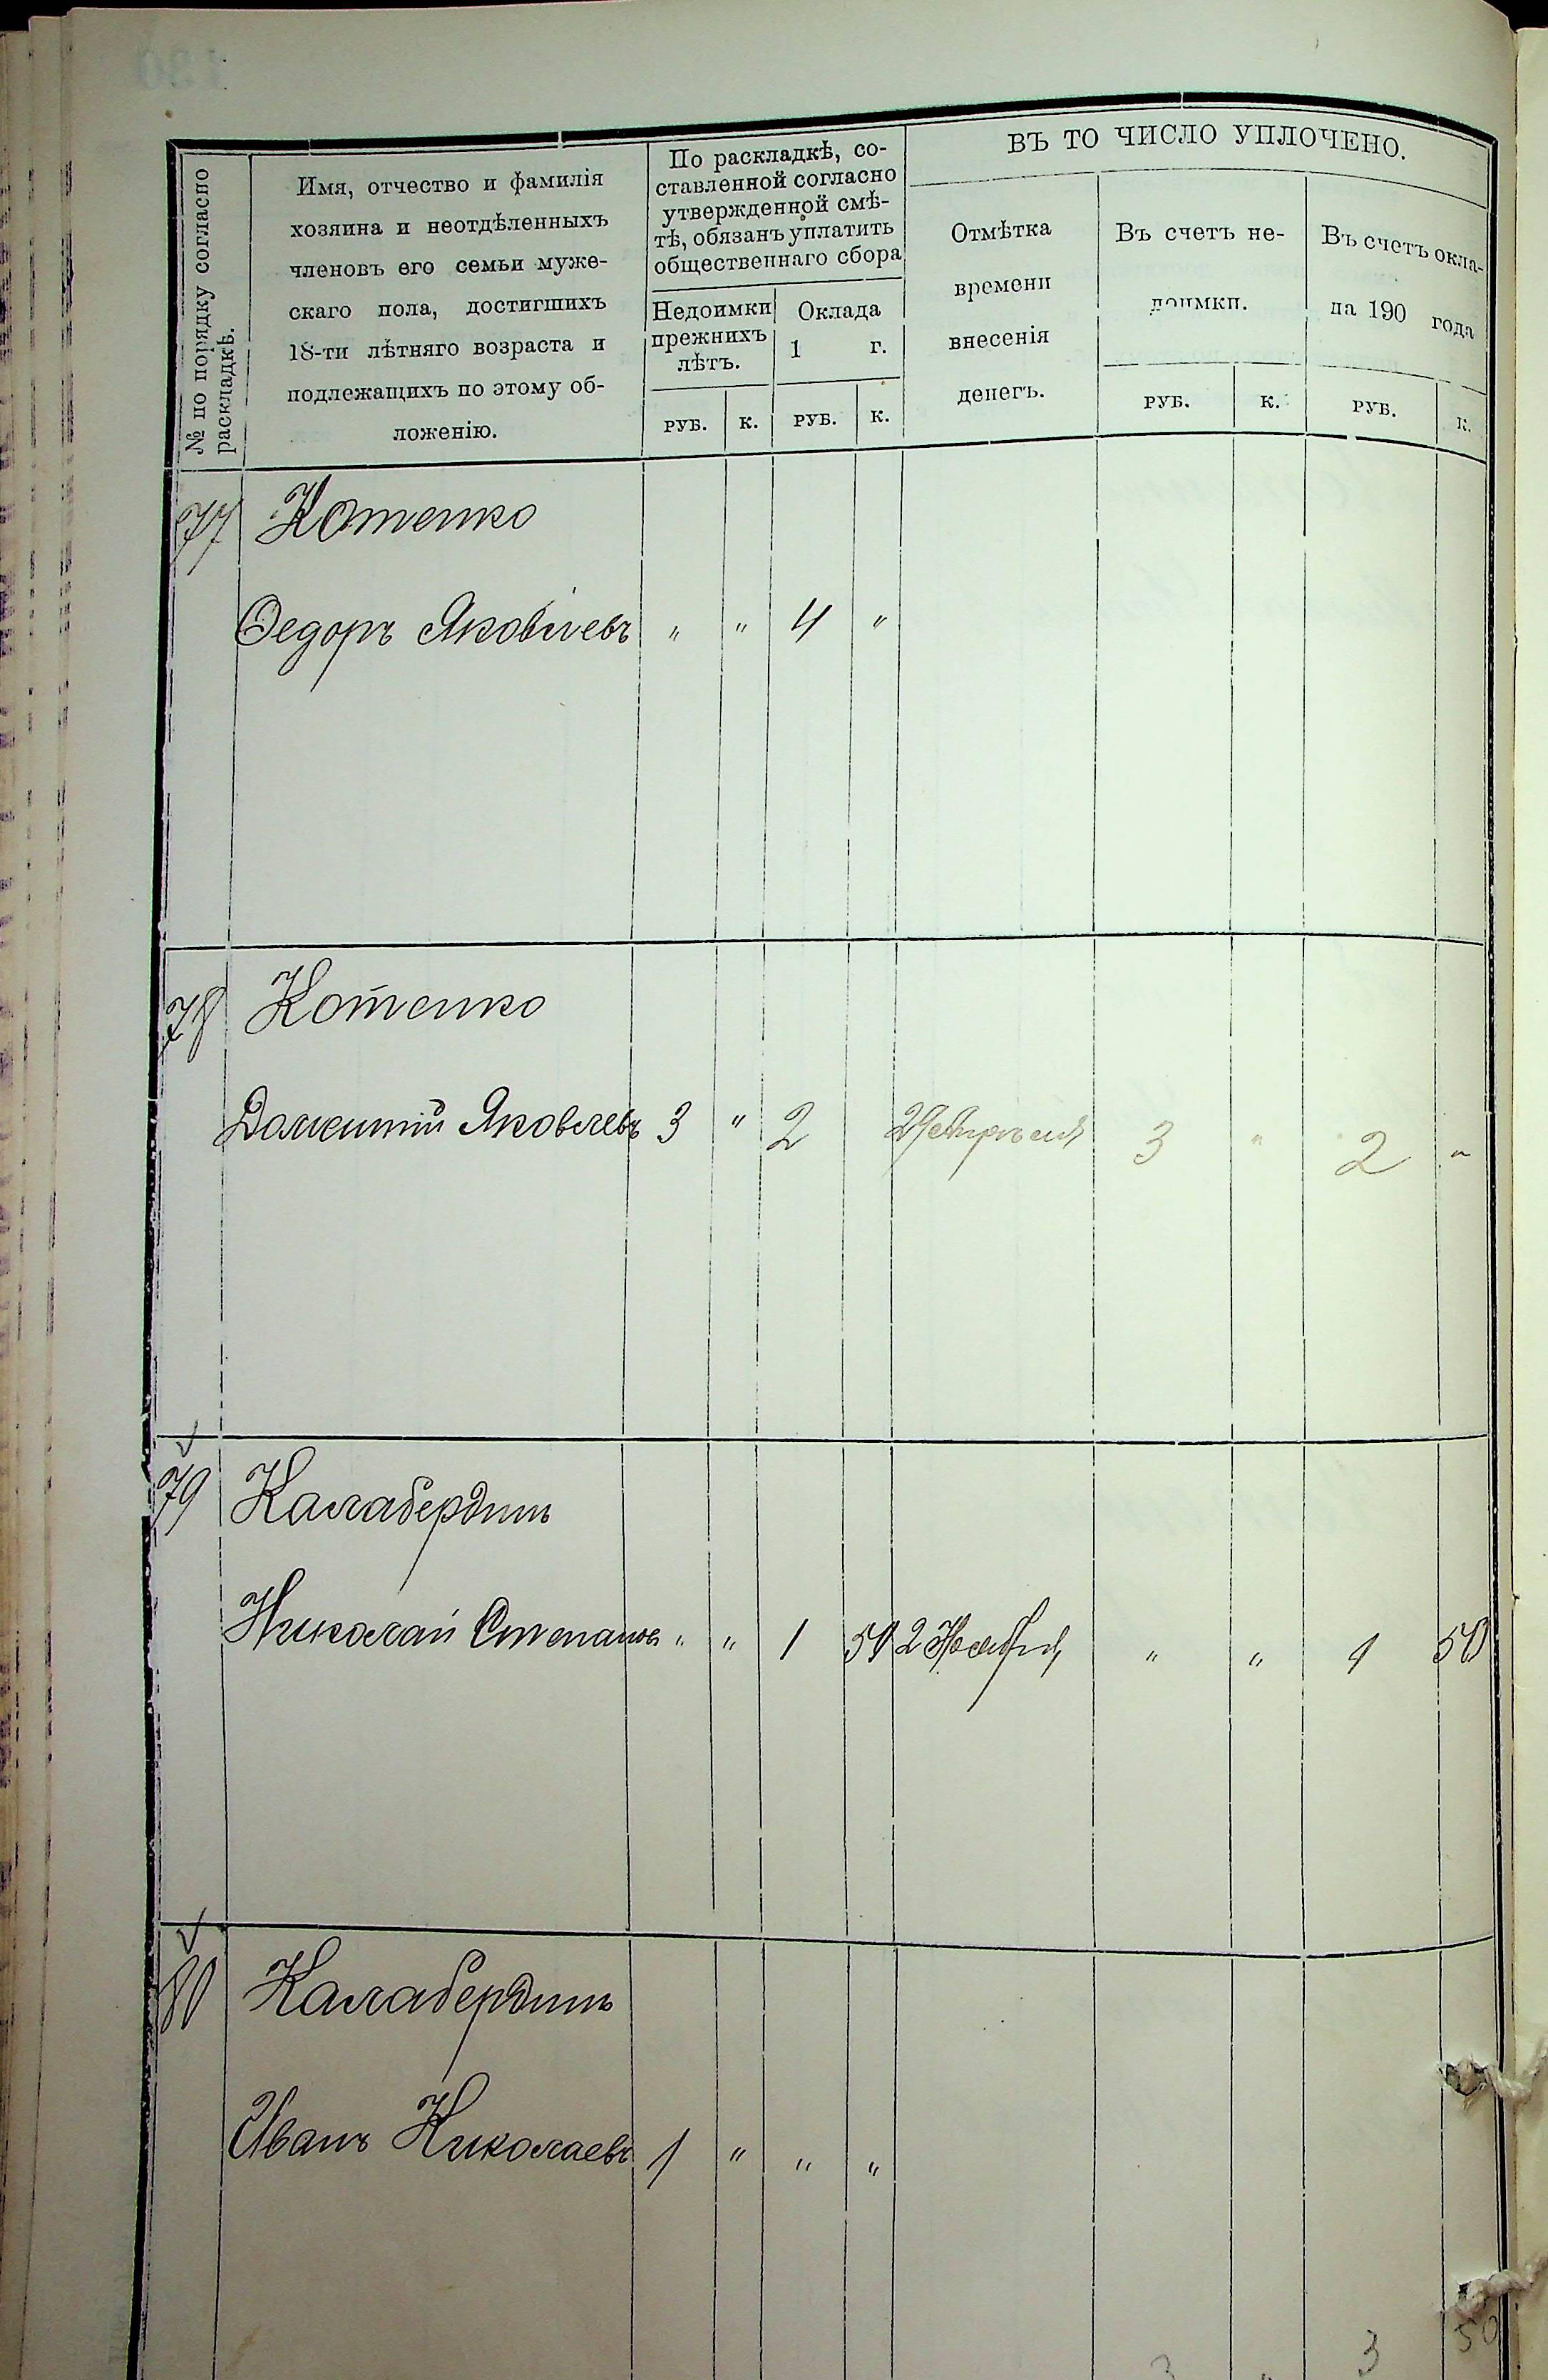 № по порядку согласно
раскладкѣ.
Имя, отчество и фамилія
хозяина и неотдѣленныхъ
членовъ его семьи муже-
скаго пола, достигшихъ
18-ти лѣтняго возраста и
подлежащихъ по этому об-
ложенію.
По раскладкѣ, со-
ставленной согласно
утвержденной смѣ-
тѣ, обязанъ уплатить
общественнаго сбора
Недоимки
прежнихъ
лѣтъ.
Оклада
1 г.
РУБ. К. РУБ. К.
ВЪ ТО ЧИСЛО УПЛОЧЕНО.
Отмѣтка
времени
внесенія
денегъ.
Въ счетъ не-
доимки.
РУБ. К.
Въ счетъ окла-
на 190 года
РУБ. К.
77 Котенко
Федоръ Яковлевъ " " 4 "
78 Котенко
Дометій Яковлевъ 3 " 2 3 " 2 "
79 Калабердинъ
Николай Степановъ " " 1 50 2 Ноября " " 1 50
80 Калабердинъ
Иванъ Николаевъ 1 " " "
3 " 3 50